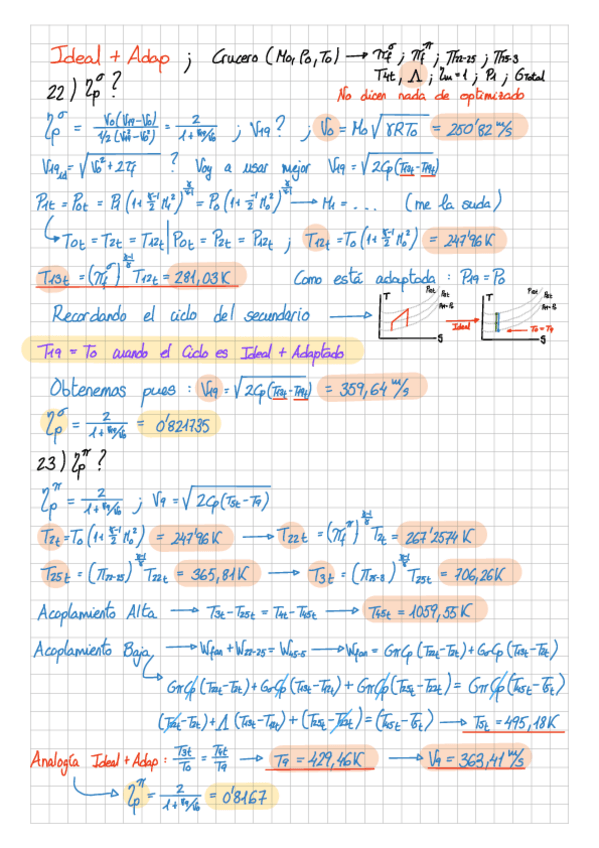 Ideal + Adap ; Crucero (Mo, Po, To) → πf^σ ; πf^π ; π22-25 ; π25-3
T4t, Λ, ηm=1 ; P1 ; GTotal
22) ηp^σ ?
No dicen nada de optimizado
ηp^σ = Vo(V19-Vo) / 1/2(V19²-Vo²) = 2/(1+V19/Vo) ; V19 ? ; Vo = Mo√(γRTo) = 250'82 m/s
V19id = √(Vo²+2τf) ? Voy a usar mejor V19 = √(2Cp(T13t-T19t))
P1t = Pot = P1(1+(γ-1)/2 M1²)^(γ/(γ-1)) = Po(1+(γ-1)/2 Mo²)^(γ/(γ-1)) → M1 = ... (me la suda)
↳ Tot = T2t = T12t | Pot = P2t = P12t ; T12t = To(1+(γ-1)/2 Mo²) = 247'96K
T13t = (πf^σ)^((γ-1)/γ) T12t = 281,03K Como está adaptada : P19 = Po
Recordando el ciclo del secundario →
T
S
Ideal
T
To = T9
S
T19 = To cuando el Ciclo es Ideal + Adaptado
Obtenemos pues : V19 = √(2Cp(T13t-T19t)) = 359,64 m/s
ηp^σ = 2/(1+V19/Vo) = 0'821735
23) ηp^π ?
ηp^π = 2/(1+V9/Vo) ; V9 = √(2Cp(T5t-T9))
T2t = To(1+(γ-1)/2 Mo²) = 247'96K → T22t = (πf^π)^((γ-1)/γ) T2t = 267'2574K
T25t = (π22-25)^((γ-1)/γ) T22t = 365,81K → T3t = (π25-3)^((γ-1)/γ) T25t = 706,26K
Acoplamiento Alta → T3t-T25t = T4t-T45t → T45t = 1059,55K
Acoplamiento Baja → Wfan + W22-25 = W45-5 → Wfan = GπCp(T22t-T2t)+GσCp(T13t-T12t)
GπCp(T22t-T2t)+GσCp(T13t-T12t)+GπCp(T25t-T22t) = GπCp(T45t-T5t)
(T22t-T2t)+Λ(T13t-T12t)+(T25t-T22t) = (T45t-T5t) → T5t = 495,18K
Analogía Ideal + Adap : T3t/To = T4t/T9 → T9 = 429,46K → V9 = 363,41 m/s
ηp^π = 2/(1+V9/Vo) = 0'8167